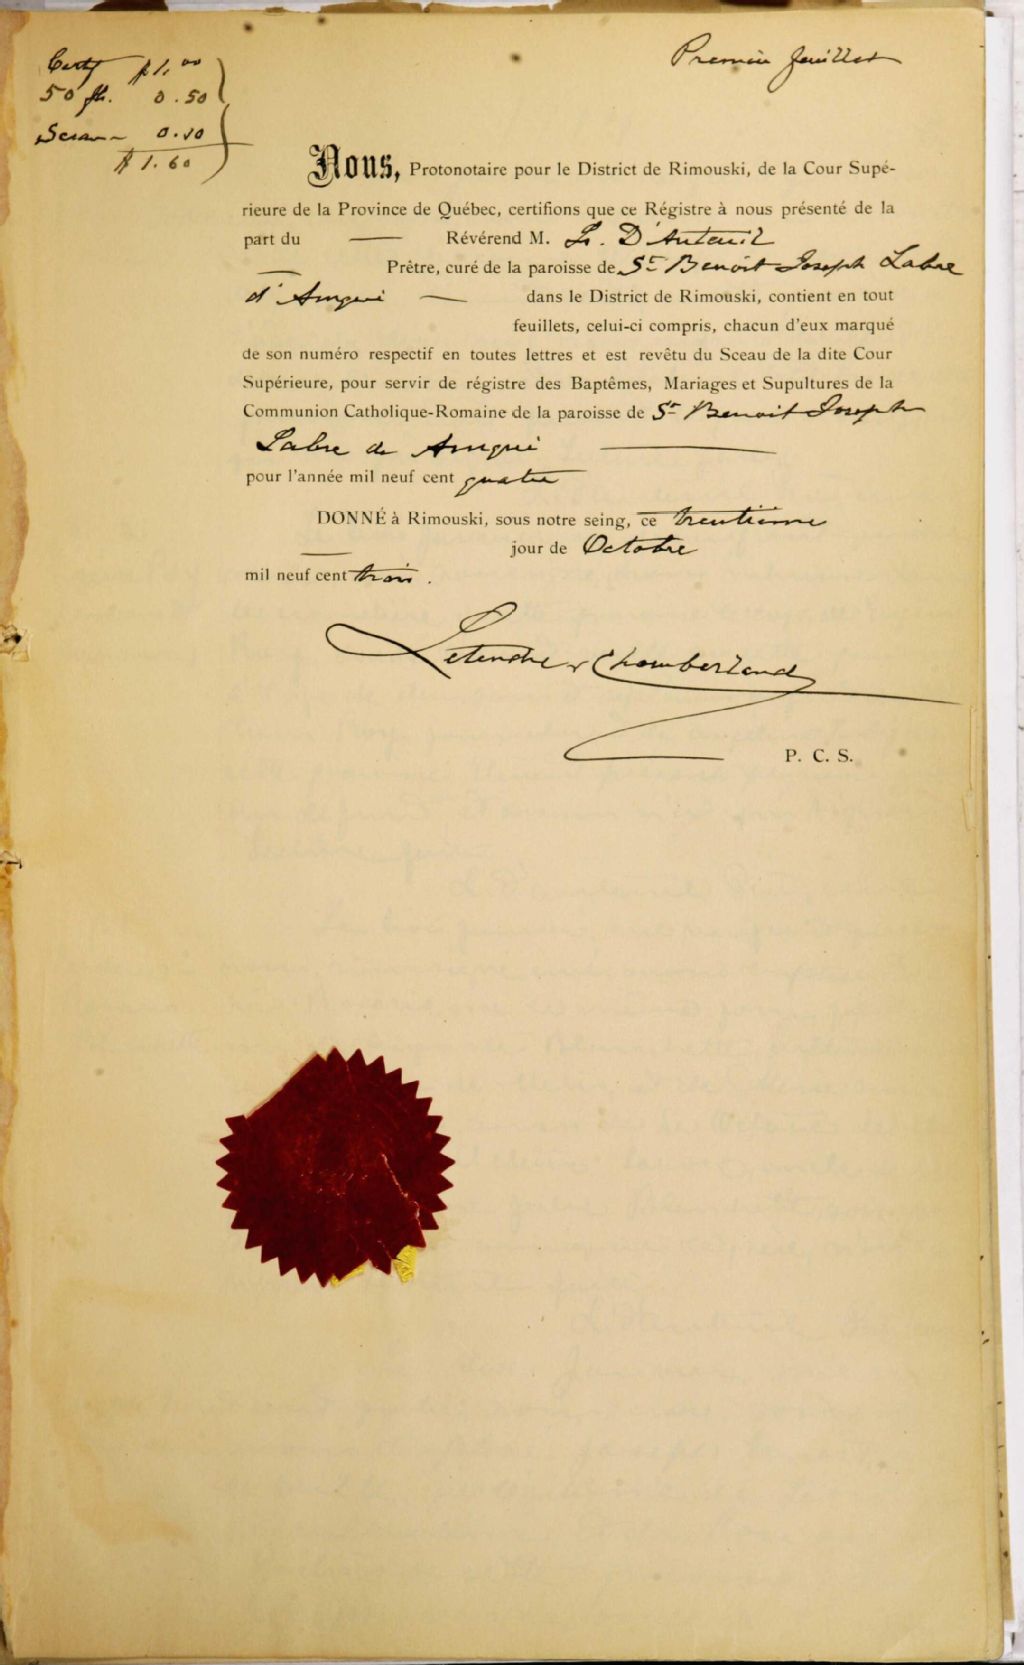 Premier feuillet
Certf $1.00
50 fts. 0.50
Sceau 0.10
$1.60
Nous, Protonotaire pour le District de Rimouski, de la Cour Supé-
rieure de la Province de Québec, certifions que ce Régistre à nous présenté de la
part du — Révérend M. Ls. D'Auteuil
— Prêtre, curé de la paroisse de St Benoit Joseph Labre
d'Amqui — dans le District de Rimouski, contient en tout
feuillets, celui-ci compris, chacun d'eux marqué
de son numéro respectif en toutes lettres et est revêtu du Sceau de la dite Cour
Supérieure, pour servir de régistre des Baptêmes, Mariages et Supultures de la
Communion Catholique-Romaine de la paroisse de St Benoit Joseph
Labre de Amqui —
pour l'année mil neuf cent quatre
DONNÉ à Rimouski, sous notre seing, ce trentième
— jour de Octobre
mil neuf cent trois.
Letendre & Chamberland
P. C. S.